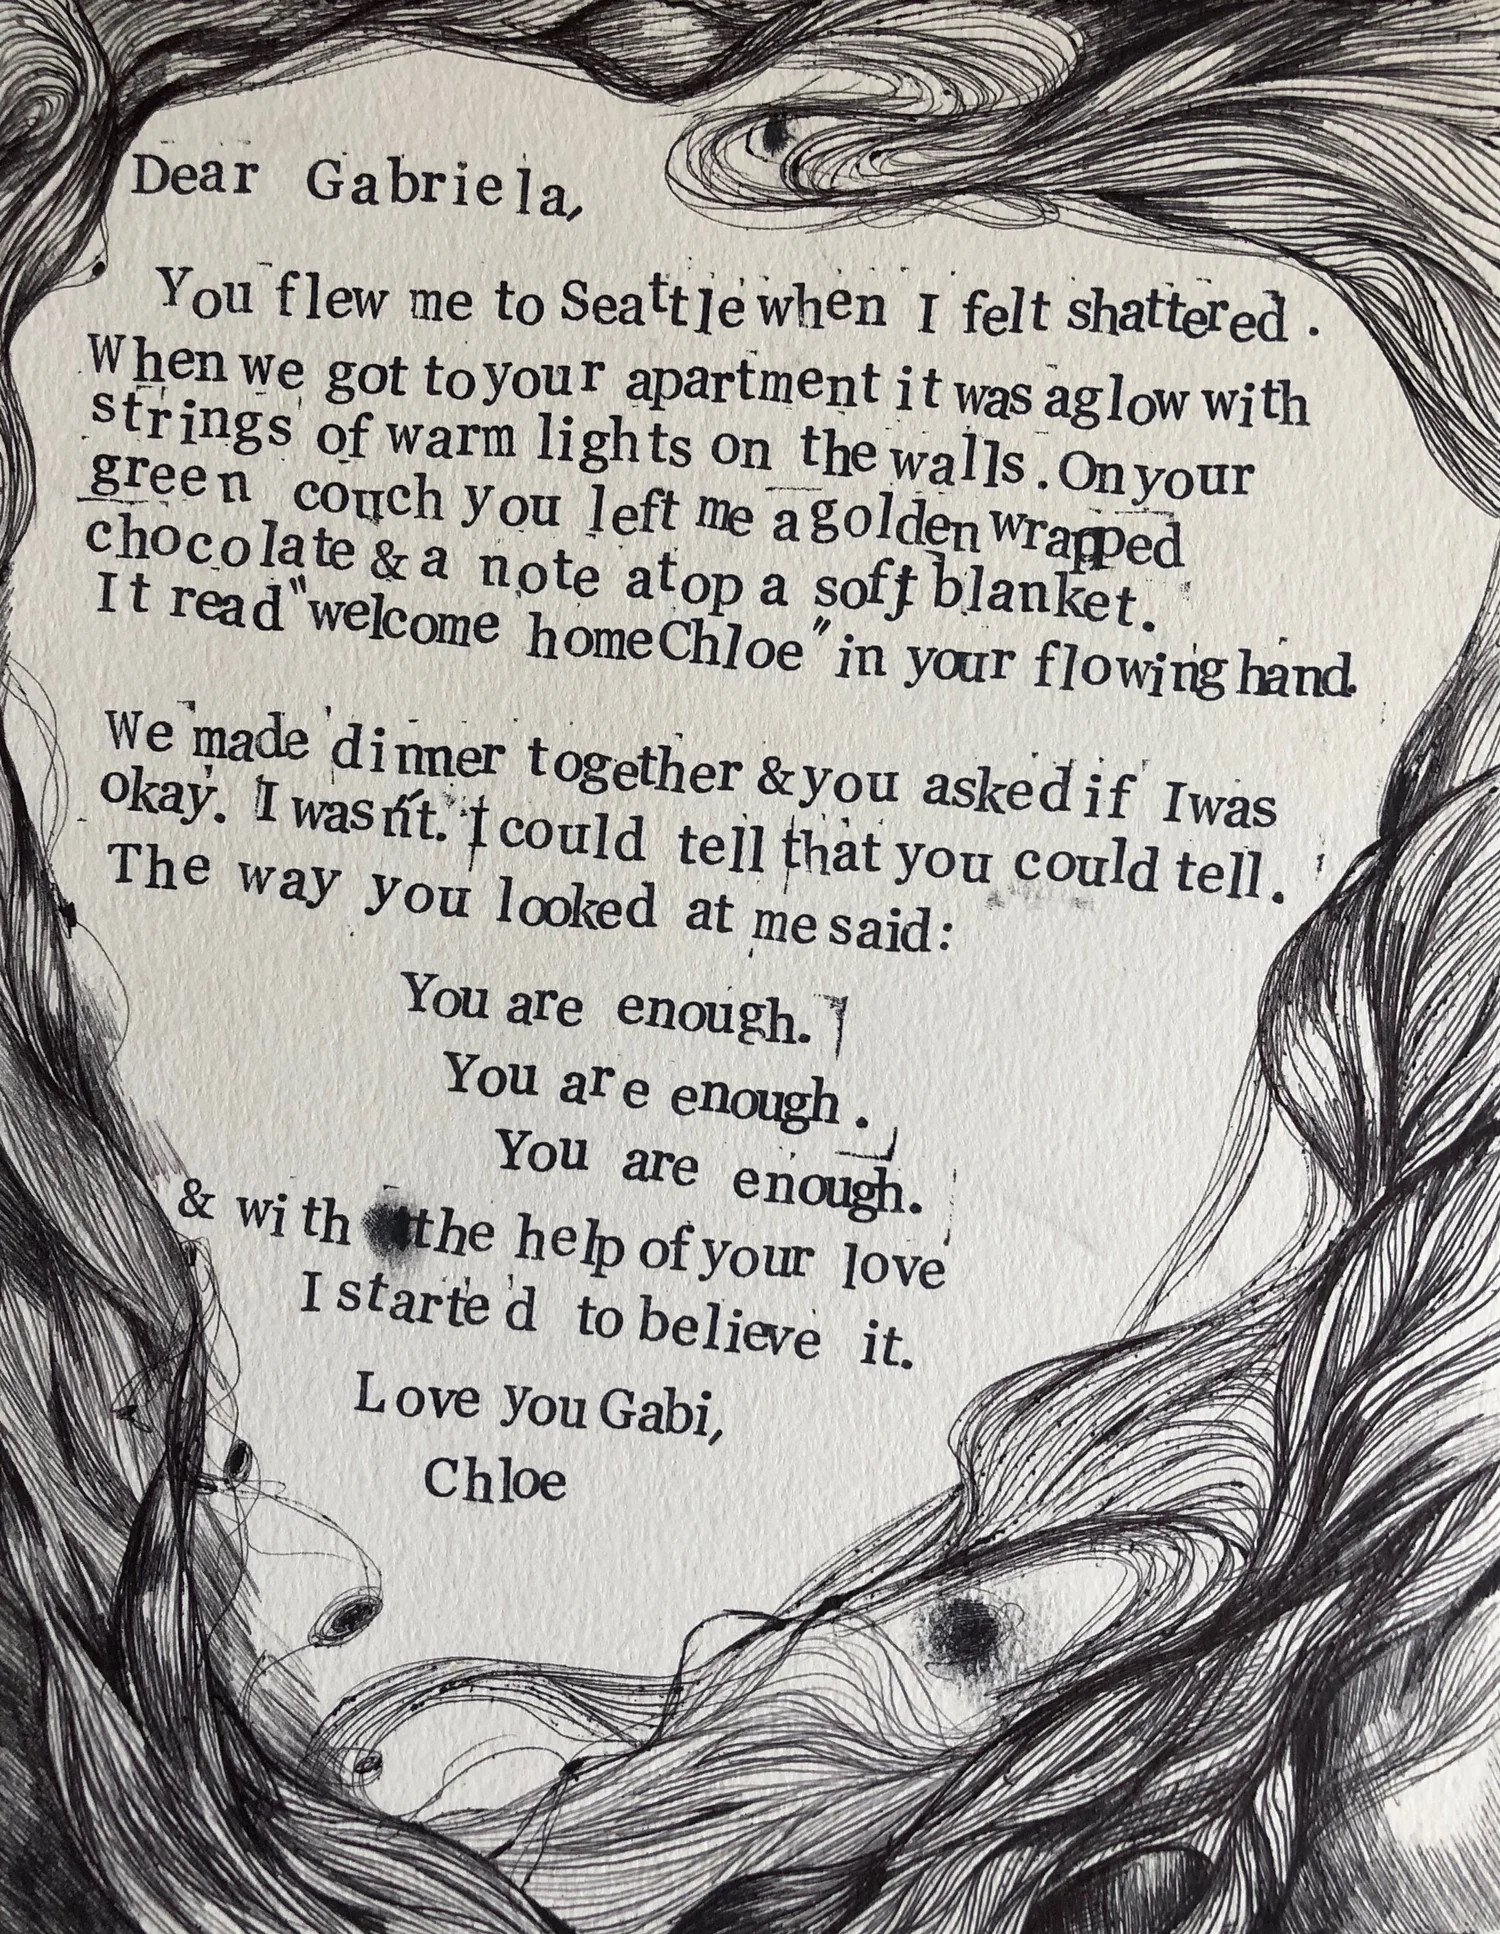 Dear Gabriela,
You flew me to Seattle when I felt shattered.
When we got to your apartment it was aglow with
strings of warm lights on the walls. On your
green couch you left me a golden wrapped
chocolate & a note atop a soft blanket.
It read "welcome home Chloe" in your flowing hand.
We made dinner together & you asked if I was
okay. I wasn't. I could tell that you could tell.
The way you looked at me said:
You are enough.
You are enough.
You are enough.
& with the help of your love
I started to believe it.
Love you Gabi,
Chloe